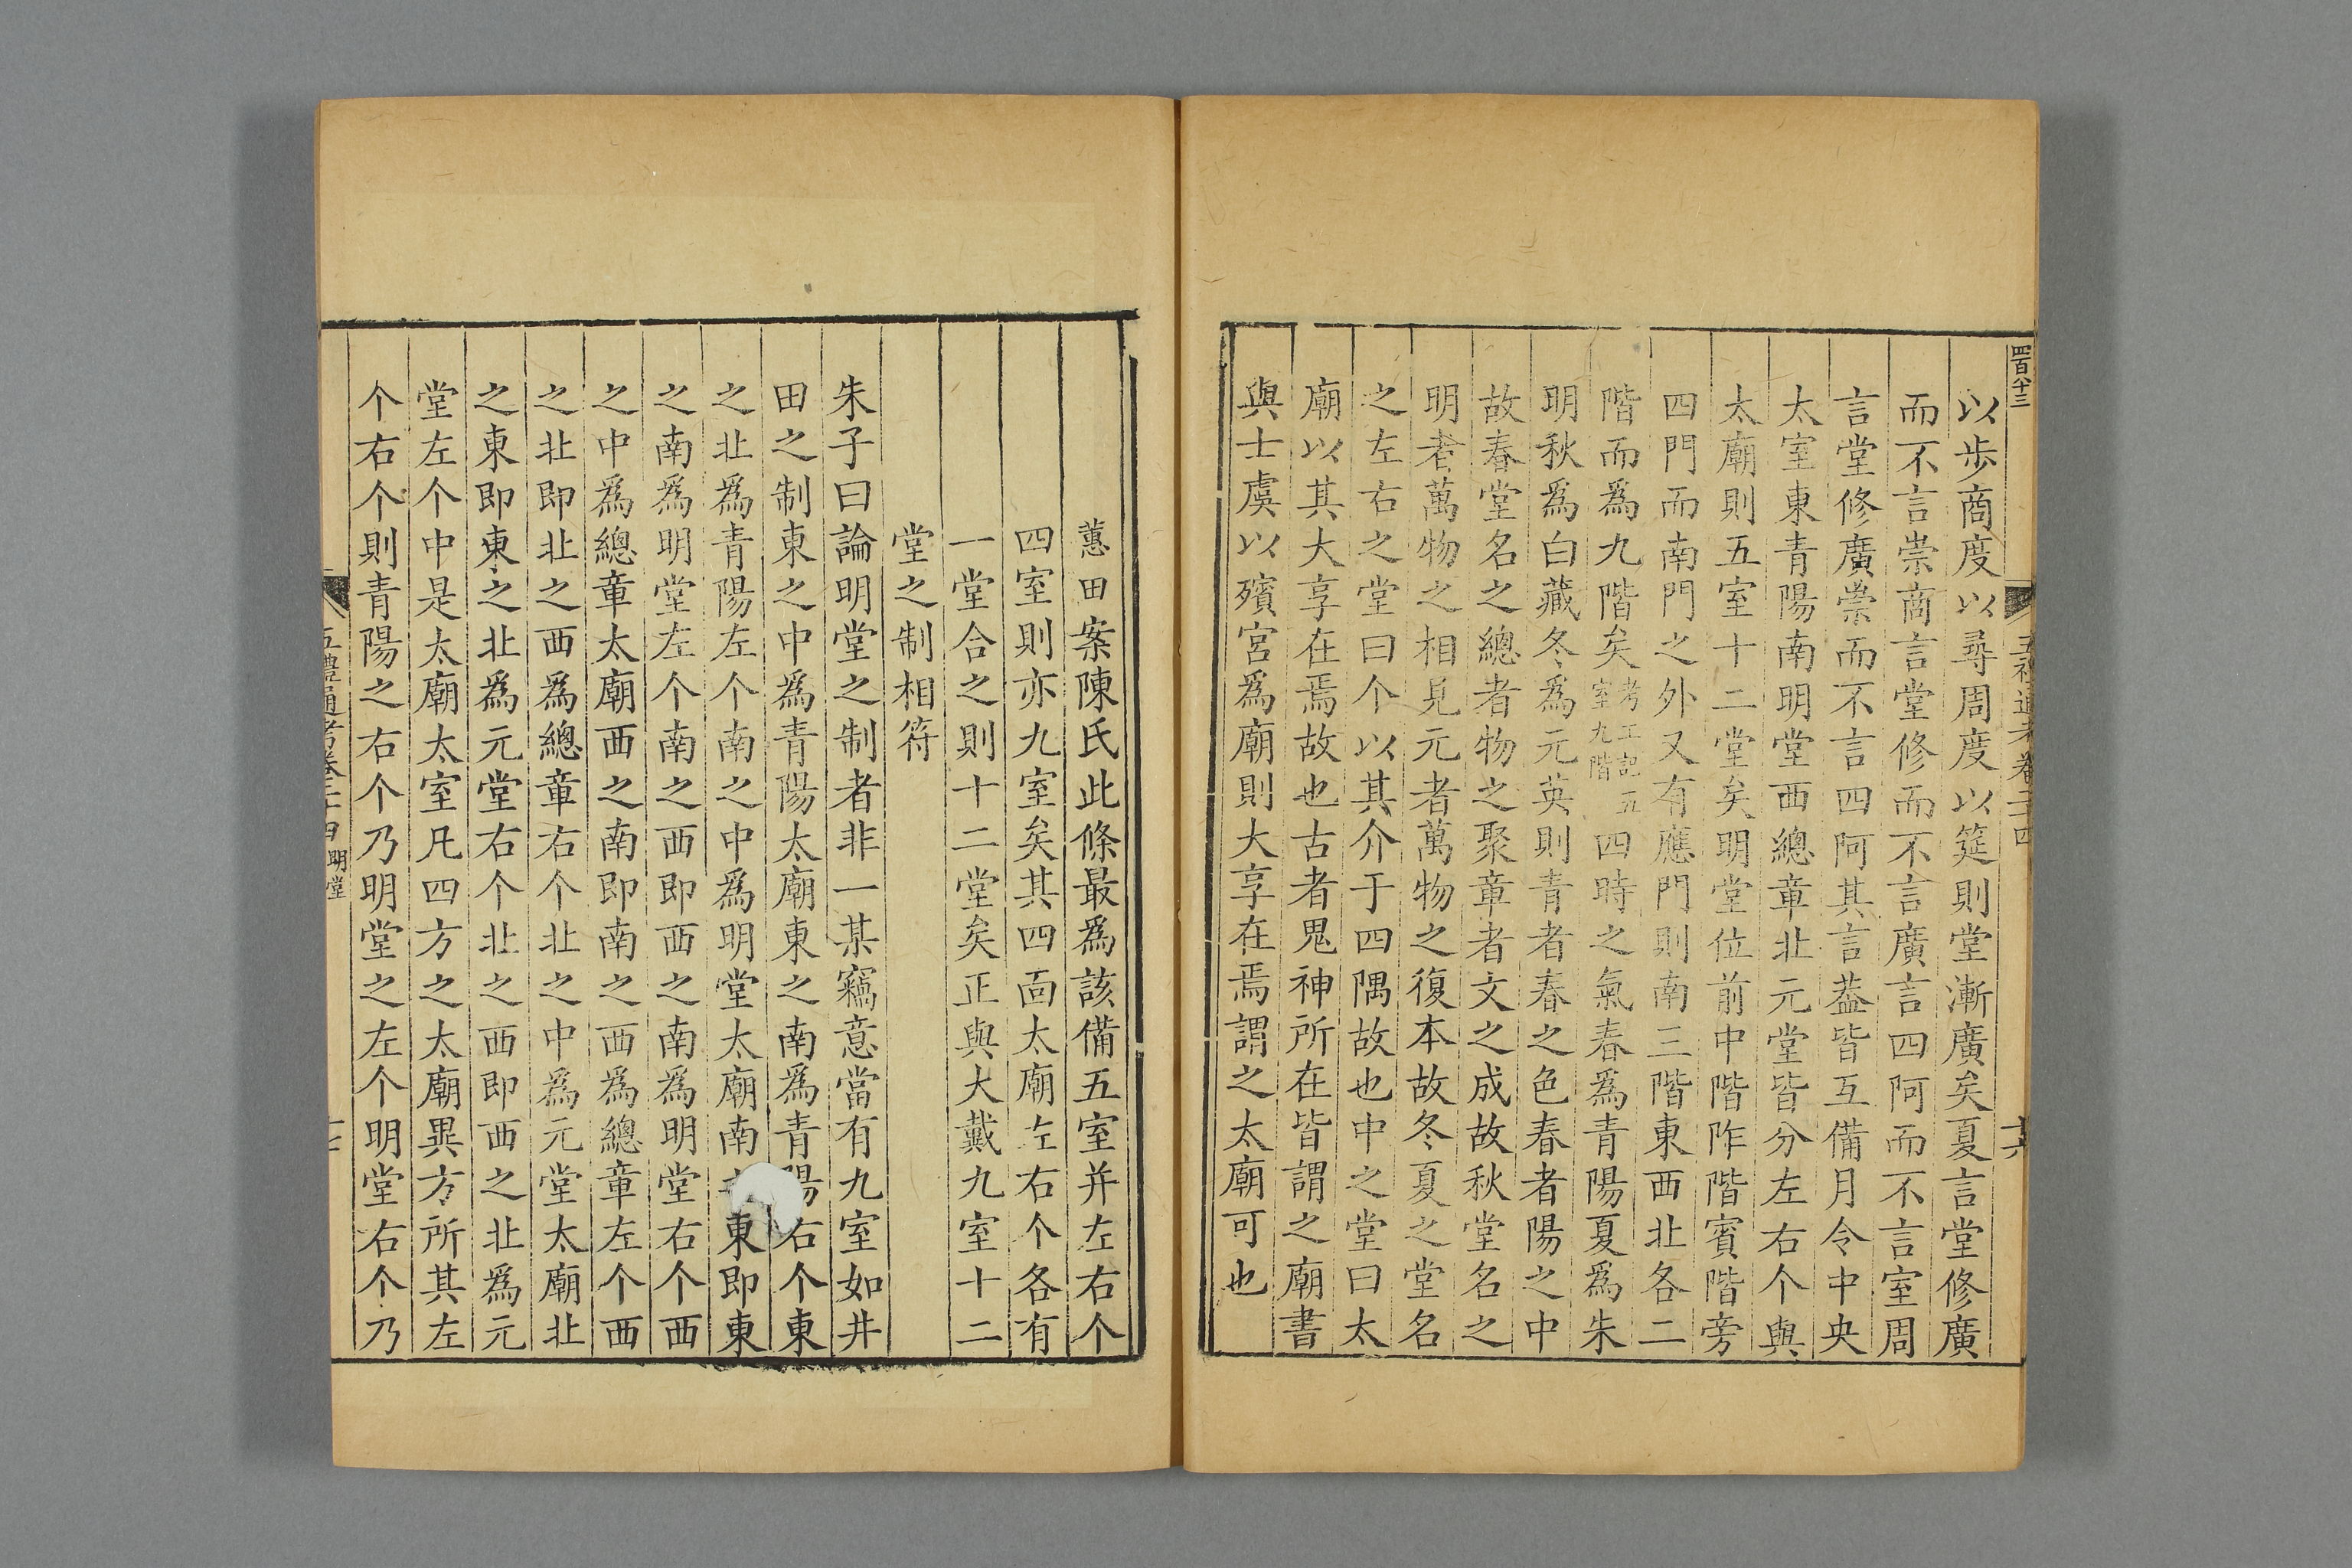 四百八十三
以步商度以尋周度以筵則堂漸廣矣夏言堂修廣
而不言崇商言堂修而不言廣言四阿而不言室周
言堂修廣崇而不言四阿其言葢皆互備月令中央
太室東青陽南明堂西總章北元堂皆分左右个與
太廟則五室十二堂矣明堂位前中階阼階賓階旁
四門而南門之外又有應門則南三階東西北各二
階而爲九階矣考工記五室九階四時之氣春爲青陽夏爲朱
明秋爲白藏冬爲元英則青者春之色春者陽之中
故春堂名之總者物之聚章者文之成故秋堂名之
明者萬物之相見元者萬物之復本故冬夏之堂名
之左右之堂曰个以其介于四隅故也中之堂曰太
廟以其大享在焉故也古者鬼神所在皆謂之廟書
與士虞以殯宮爲廟則大享在焉謂之太廟可也
蕙田案陳氏此條最爲該備五室并左右个
四室則亦九室矣其四面太廟左右个各有
一堂合之則十二堂矣正與大戴九室十二
堂之制相符
朱子曰論明堂之制者非一某竊意當有九室如井
田之制東之中爲青陽太廟東之南爲青陽右个東
之北爲青陽左个南之中爲明堂太廟南東即東
之南爲明堂左个南之西即西之南爲明堂右个西
之中爲總章太廟西之南即南之西爲總章左个西
之北即北之西爲總章右个北之中爲元堂太廟北
之東即東之北爲元堂右个北之西即西之北爲元
堂左个中是太廟太室凡四方之太廟異方所其左
个右个則青陽之右个乃明堂之左个明堂右个乃
五禮通考卷二十四 明堂